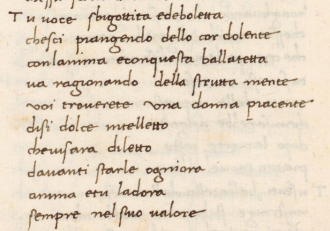 Tu voce sbigottita edeboletta
chesci piangendo dello cor dolente
conlanima econquesta ballatetta
va ragionando della strutta mente
voi troverete una donna piacente
disi dolce intelletto
chevisara diletto
davanti starle ogniora
anima etu ladora
sempre nelsuo valore